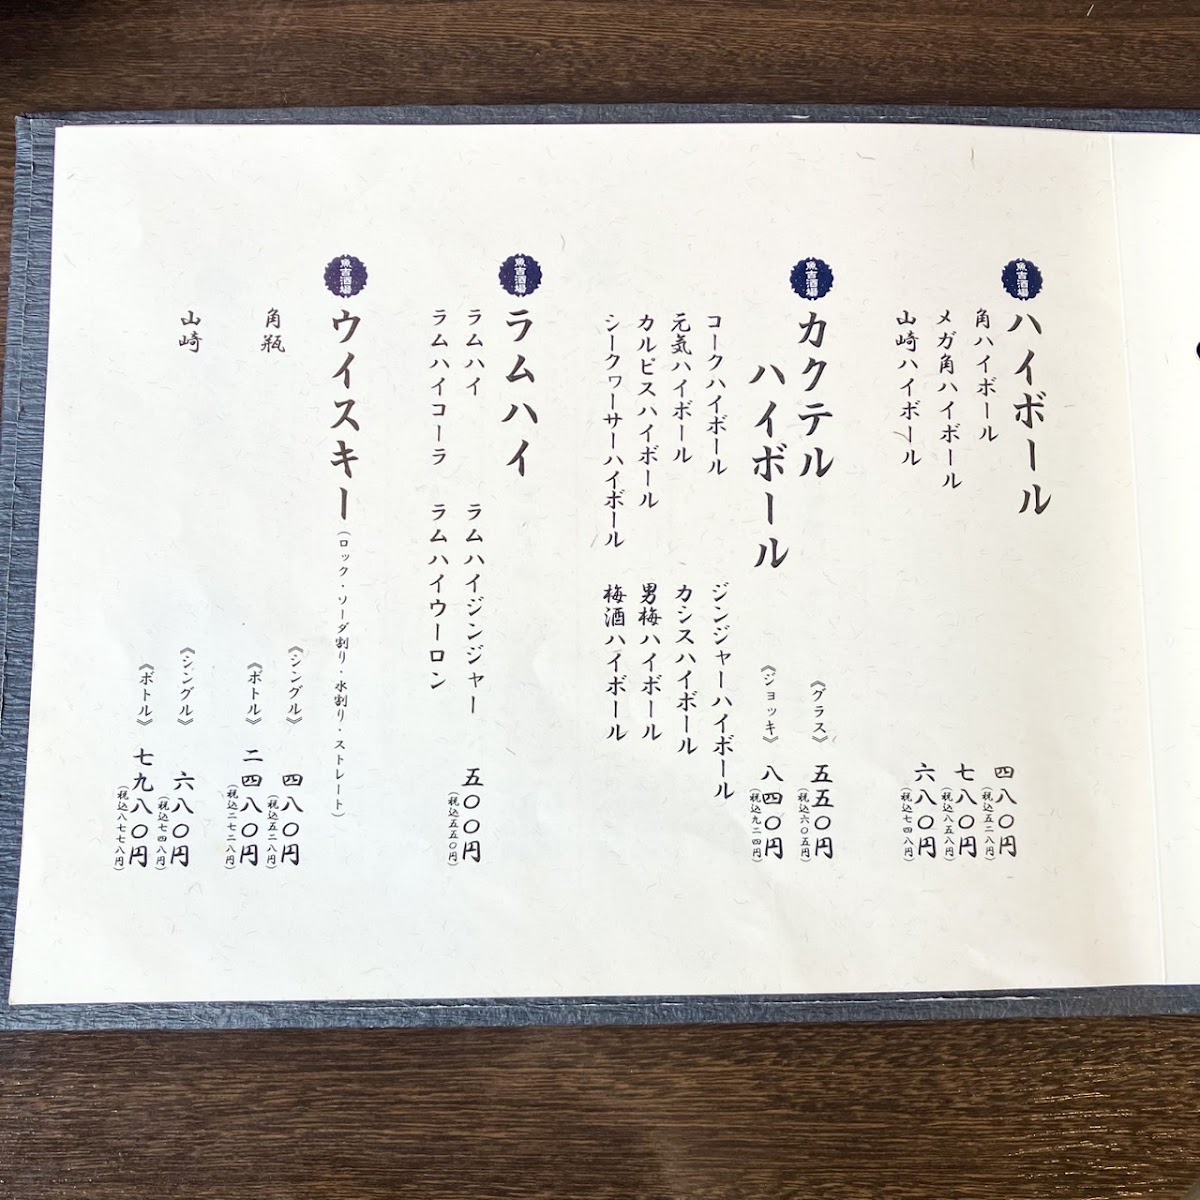 魚吉酒場
ハイボール
角ハイボール
四八〇円
(税込五二八円)
メガ角ハイボール
七八〇円
(税込八五八円)
山崎ハイボール
六八〇円
(税込七四八円)
魚吉酒場
カクテル
ハイボール
《グラス》
五五〇円
(税込六〇五円)
《ジョッキ》
八四〇円
(税込九二四円)
コークハイボール
ジンジャーハイボール
元気ハイボール
カシスハイボール
カルピスハイボール
男梅ハイボール
シークヮーサーハイボール
梅酒ハイボール
魚吉酒場
ラムハイ
ラムハイ
ラムハイジンジャー
五〇〇円
(税込五五〇円)
ラムハイコーラ
ラムハイウーロン
魚吉酒場
ウイスキー(ロック・ソーダ割り・水割り・ストレート)
角瓶
《シングル》
四八〇円
(税込五二八円)
《ボトル》
二四八〇円
(税込二七二八円)
山崎
《シングル》
六八〇円
(税込七四八円)
《ボトル》
七九八〇円
(税込八七七八円)